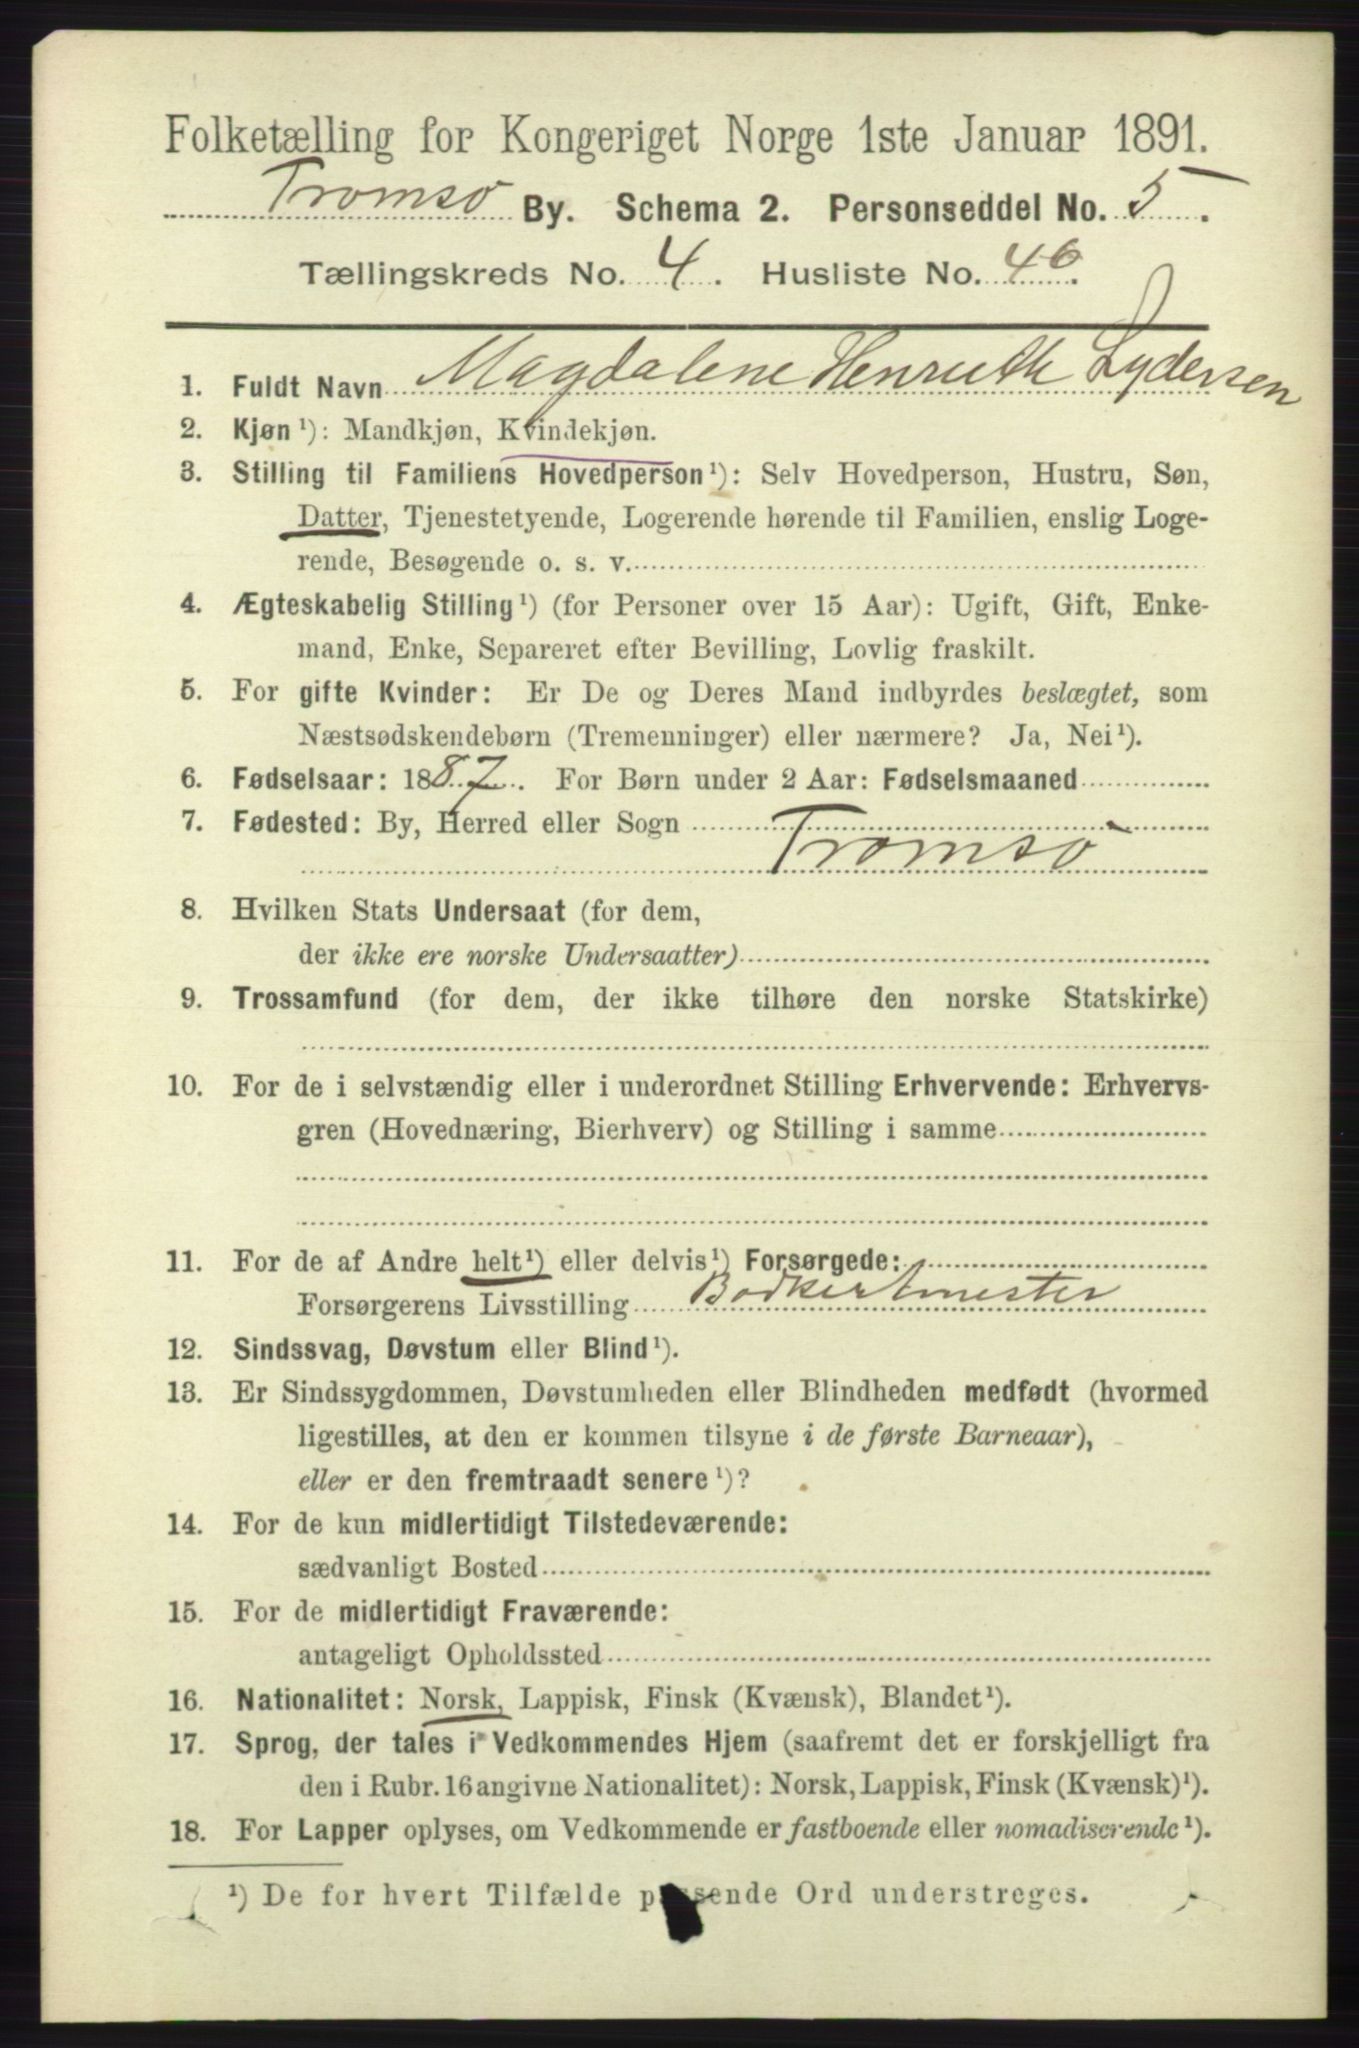 Folketælling for Kongeriget Norge 1ste Januar 1891.
Tromsø By. Schema 2. Personseddel No. 5.
Tællingskreds No. 4. Husliste No. 46.
1. Fuldt Navn Magdalene Lydersen
2. Kjøn¹): Mandkjøn, Kvindekjøn.
3. Stilling til Familiens Hovedperson¹): Selv Hovedperson, Hustru, Søn,
Datter, Tjenestetyende, Logerende hørende til Familien, enslig Loge-
rende, Besøgende o. s. v.
4. Ægteskabelig Stilling¹) (for Personer over 15 Aar): Ugift, Gift, Enke-
mand, Enke, Separeret efter Bevilling, Lovlig fraskilt.
5. For gifte Kvinder: Er De og Deres Mand indbyrdes beslægtet, som
Næstsødskendebørn (Tremenninger) eller nærmere? Ja, Nei¹).
6. Fødselsaar: 1887. For Børn under 2 Aar: Fødselsmaaned
7. Fødested: By, Herred eller Sogn
Tromsø
8. Hvilken Stats Undersaat (for dem,
der ikke ere norske Undersaatter)
9. Trossamfund (for dem, der ikke tilhøre den norske Statskirke)
10. For de i selvstændig eller i underordnet Stilling Erhvervende: Erhvervs-
gren (Hovednæring, Bierhverv) og Stilling i samme
11. For de af Andre helt¹) eller delvis¹) Forsørgede:
Forsørgerens Livsstilling Bødkermester
12. Sindssvag, Døvstum eller Blind¹).
13. Er Sindssygdommen, Døvstumheden eller Blindheden medfødt (hvormed
ligestilles, at den er kommen tilsyne i de første Barneaar),
eller er den fremtraadt senere¹)?
14. For de kun midlertidigt Tilstedeværende:
sædvanligt Bosted
15. For de midlertidigt Fraværende:
antageligt Opholdssted
16. Nationalitet: Norsk, Lappisk, Finsk (Kvænsk), Blandet¹).
17. Sprog, der tales i Vedkommendes Hjem (saafremt det er forskjelligt fra
den i Rubr. 16 angivne Nationalitet): Norsk, Lappisk, Finsk (Kvænsk)¹).
18. For Lapper oplyses, om Vedkommende er fastboende eller nomadiserende¹).
¹) De for hvert Tilfælde passende Ord understreges.